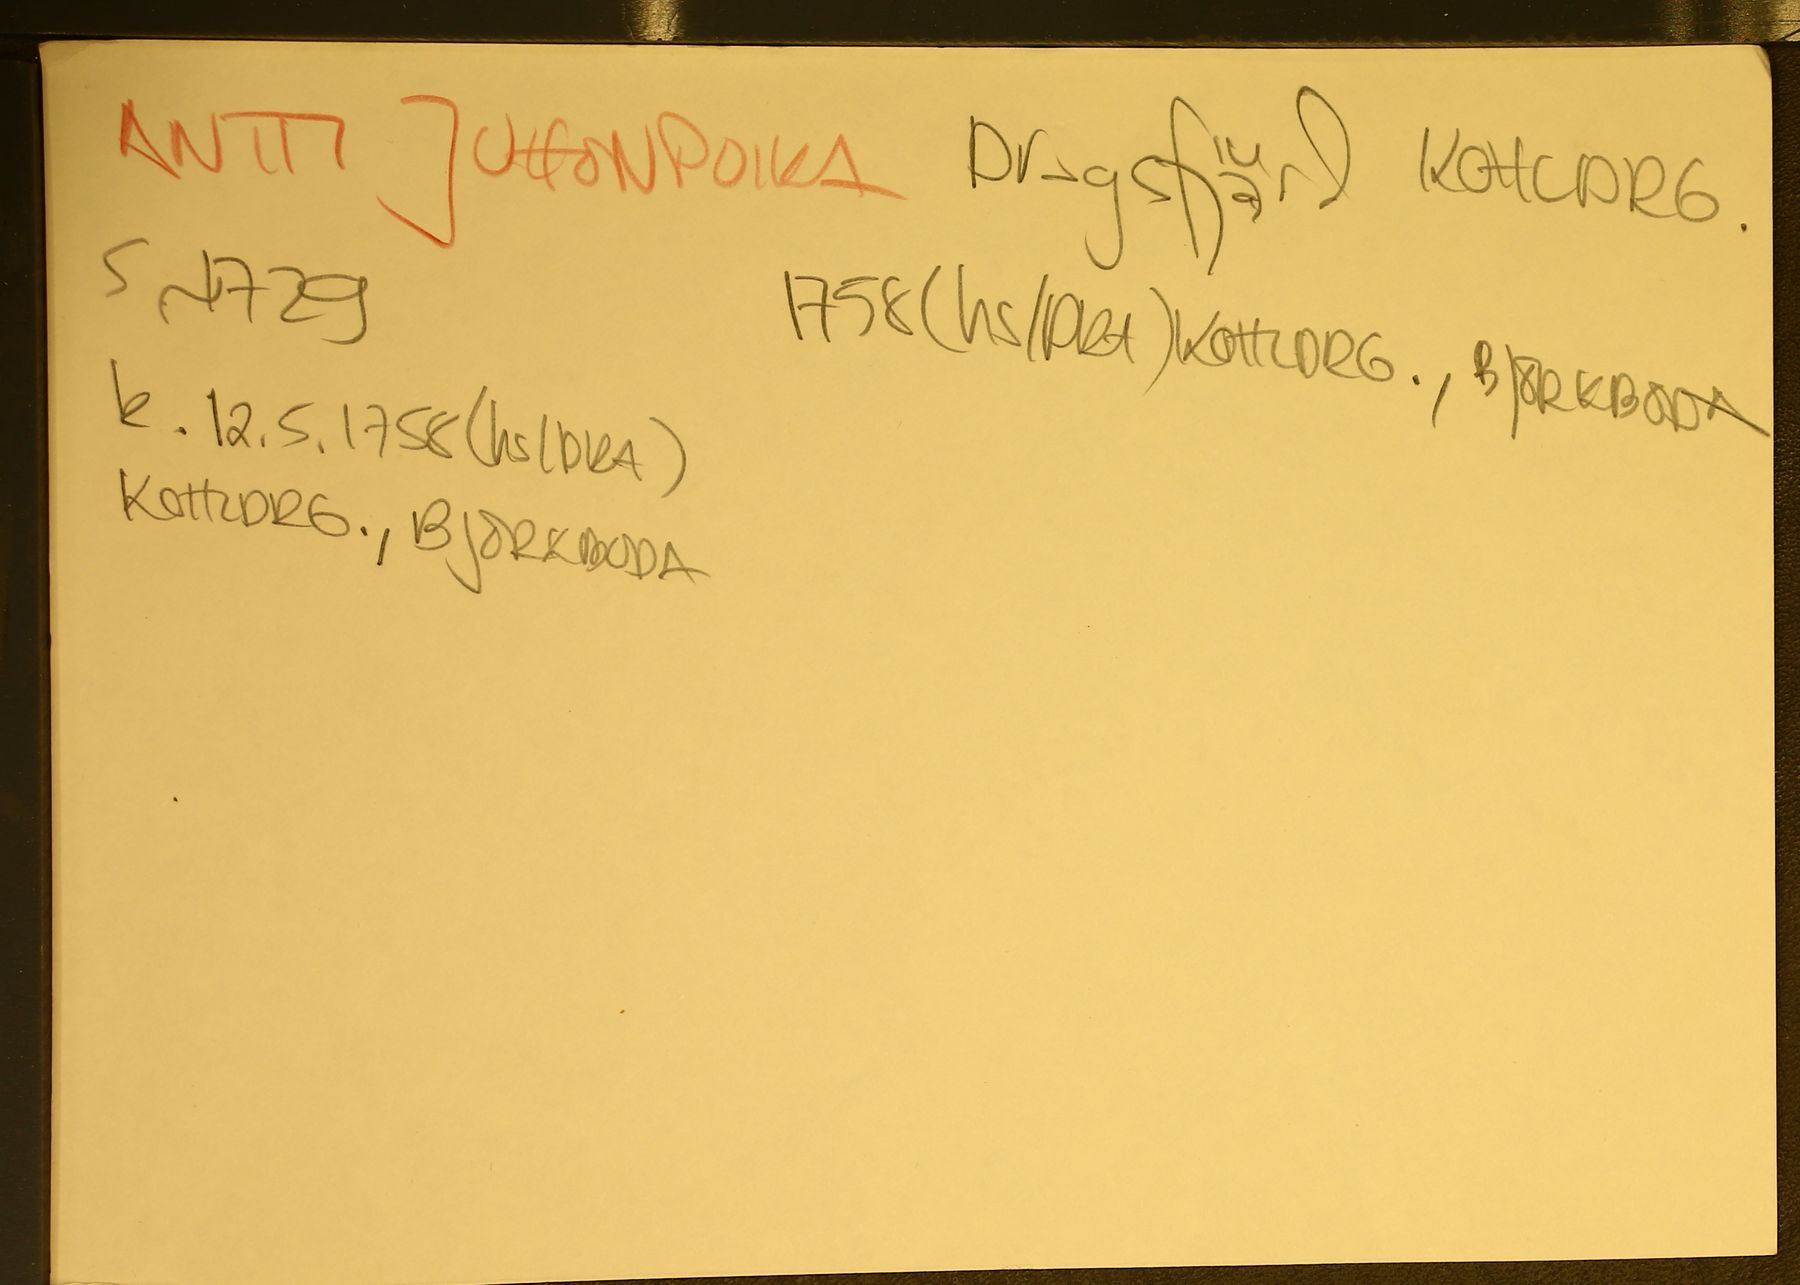 ANTTI JUHONPOIKA Dragsfjärd KOHLDRG.
S ~1729
1758(hs/DRA)KOHLDRG., BJÖRKBODA
k. 12.5.1758(hs/DRA)
KOHLDRG., BJÖRKBODA